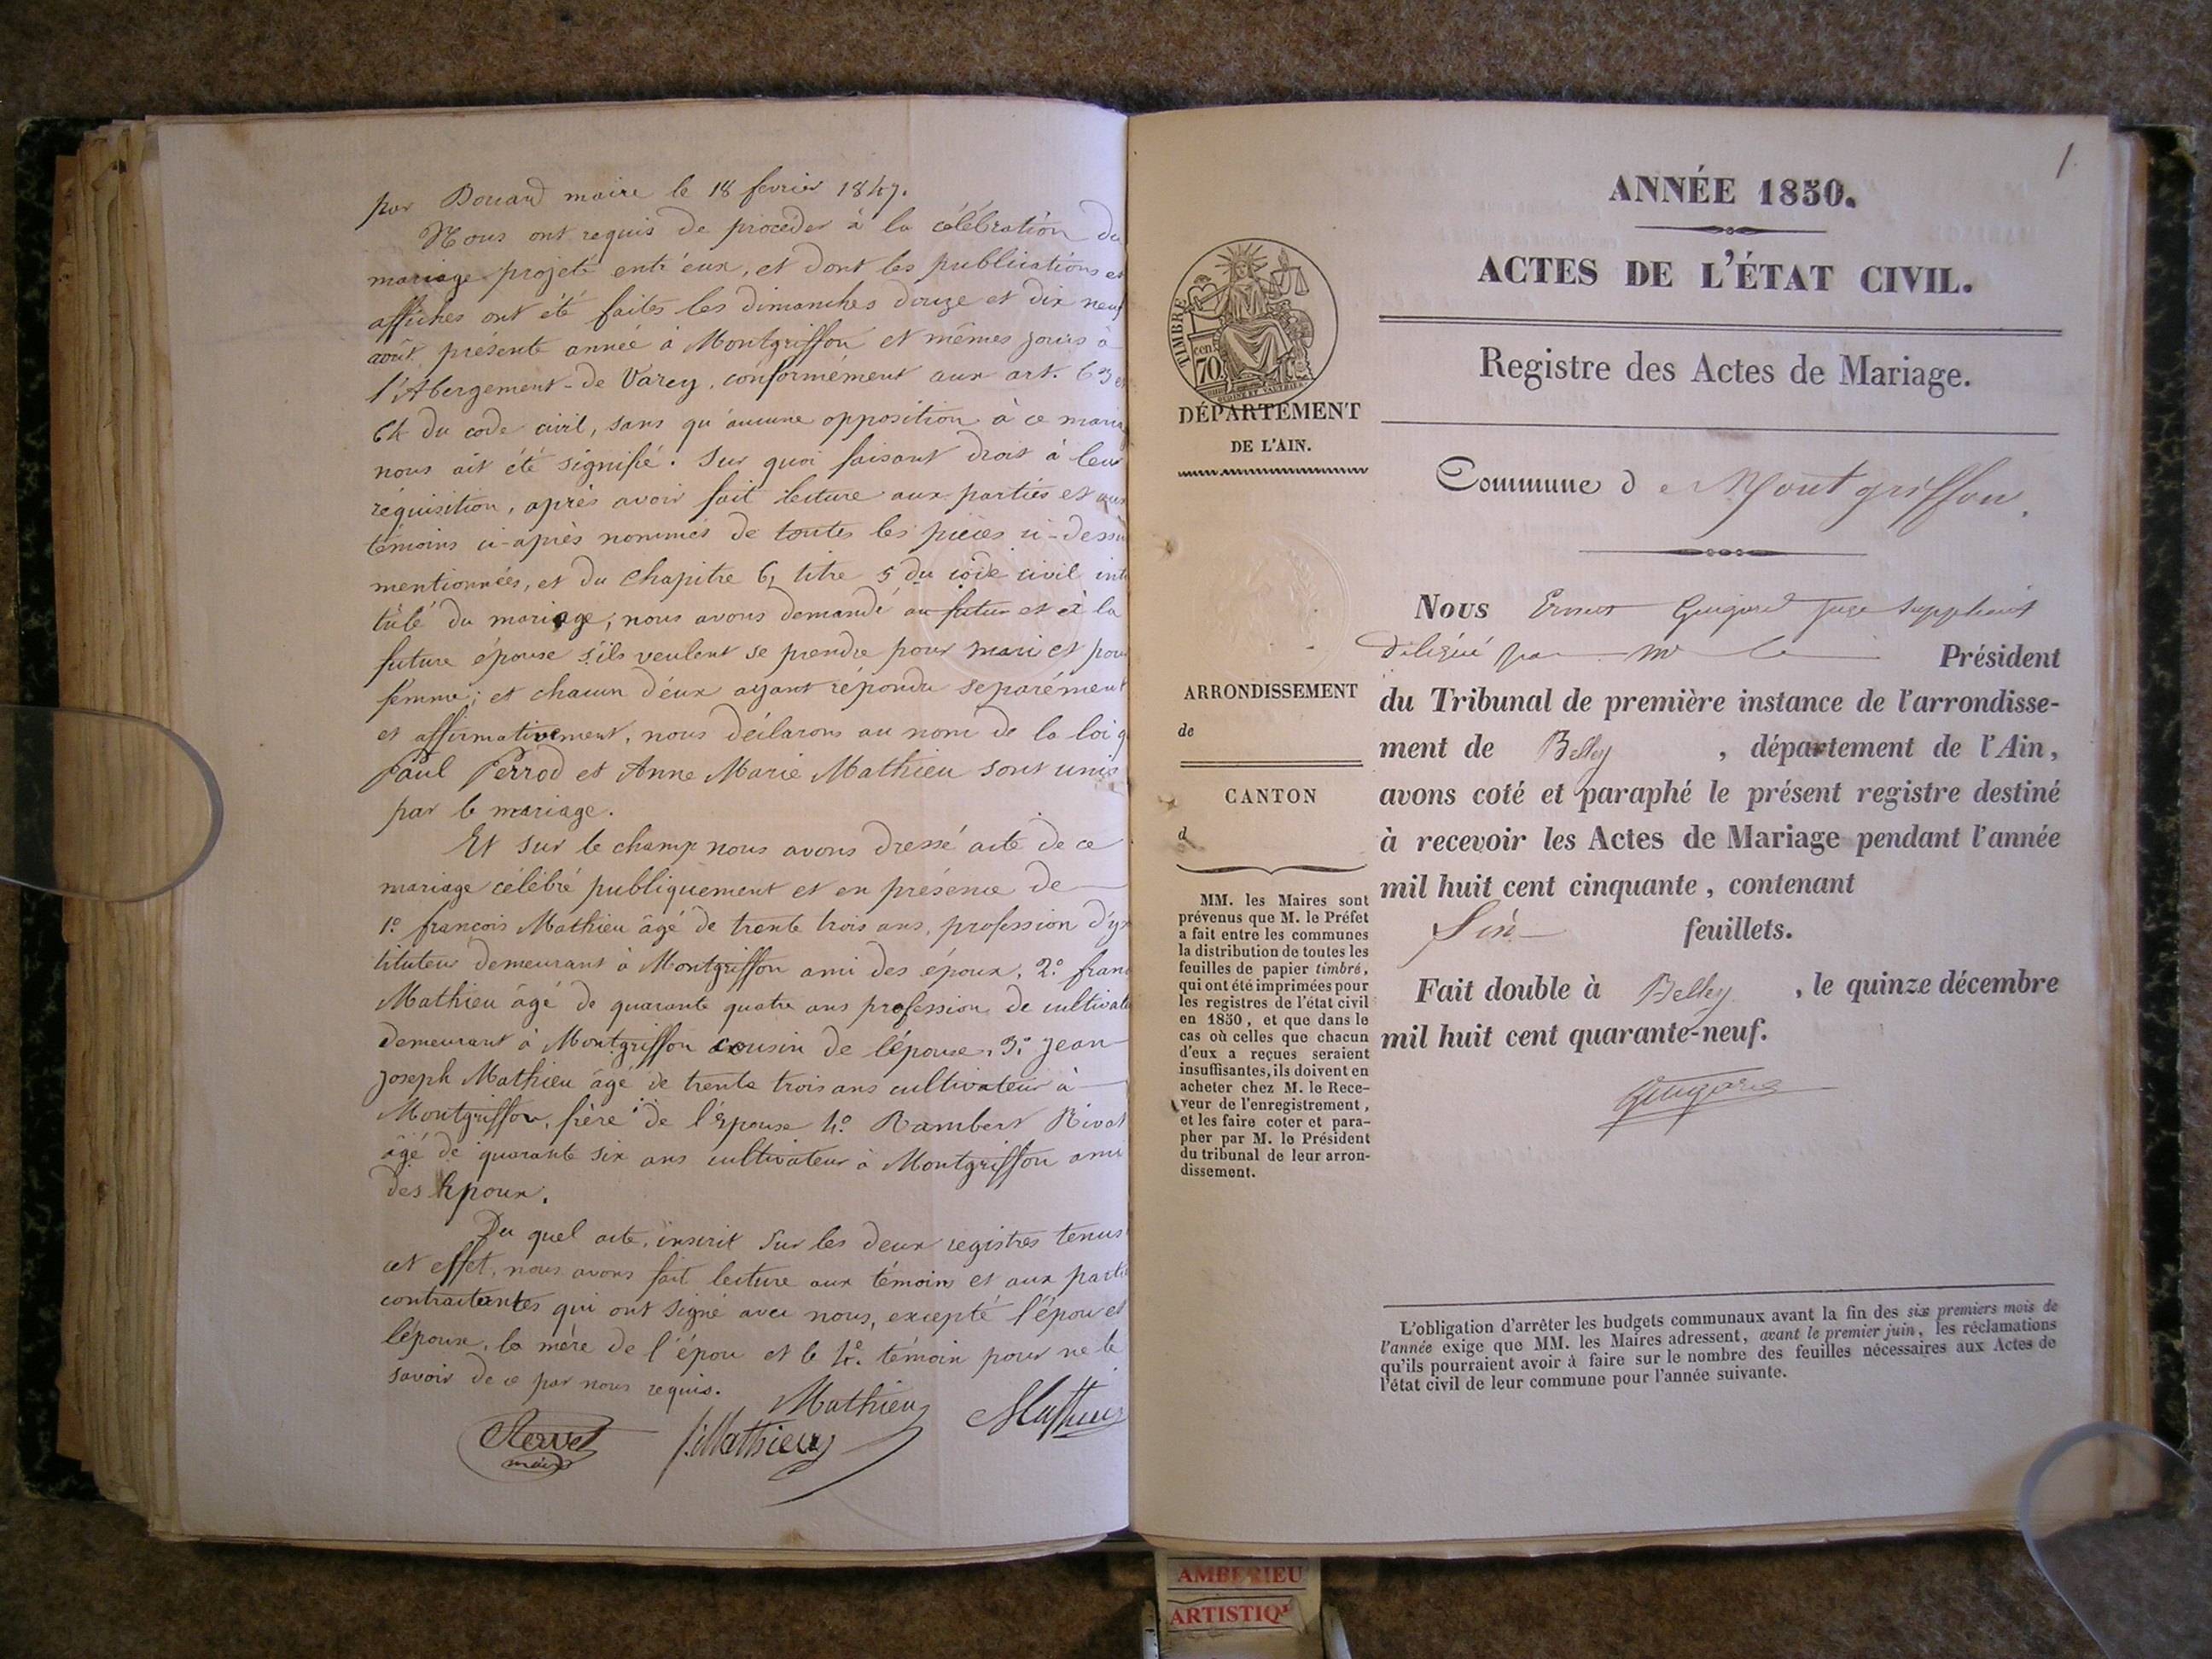 par Bouard maire le 18 fevrier 1847.
Nous ont requis de proceder à la célébration du
mariage projeté entr'eux, et dont les publications et
affiches ont été faites les dimanches douze et dix neuf
août présente année à Montgriffon et mêmes jours à
l'Abergement-de Varey, conformément aux art. 63 et
64 du code civil, sans qu'aucune opposition à ce maria
nous ait été signifié. Sur quoi faisant droit à leur
réquisition, après avoir fait lecture aux parties et aux
témoins ci-après nommés de toutes les pièces ci-dessu
mentionnées, et du chapitre 6, titre 5 du code civil inti
tulé du mariage; nous avons demandé au futur et à la
future épouse s'ils veulent se prendre pour mari et pour
femme; et chacun d'eux ayant répondu separément
et affirmativement, nous déclarons au nom de la loi q
Paul Perrod et Anne Marie Mathieu sont unis
par le mariage.
Et sur le champ nous avons dressé acte de ce
mariage célébré publiquement et en présence de
1º françois Mathieu âgé de trente trois ans, profession d'yns
tituteur demeurant à Montgriffon ami des époux, 2º franc
Mathieu âgé de quarante quatre ans profession de cultivate
demeurant à Montgriffon cousin de l'épouse, 3º jean
joseph Mathieu âgé de trente trois ans cultivateur à
Montgriffon, frère de l'Epouse 4º Rambert Rivat
âgé de quarante six ans cultivateur à Montgriffon ami
des Epoux.
Du quel acte, inscrit sur les deux registres tenus
cet effet, nous avons fait lecture aux témoins et aux partie
contractantes qui ont signé avec nous, excepté l'épou et
l'épouse, la mère de l'épou et le 4e témoin pour ne le
savoir de ce par nous requis.
Mathieu
maire
J. Mathieu
Mathieu
1
ANNÉE 1850.
ACTES DE L'ÉTAT CIVIL.
Registre des Actes de Mariage.
TIMBRE
70 cen.
DÉPARTEMENT
DE L'AIN.
Commune de Montgriffon.
Nous Ernest Guigard Juge Suppléant
délégué par Mr le Président
du Tribunal de première instance de l'arrondisse-
ment de Belley, département de l'Ain,
avons coté et paraphé le présent registre destiné
à recevoir les Actes de Mariage pendant l'année
mil huit cent cinquante, contenant
Six feuillets.
Fait double à Belley, le quinze décembre
mil huit cent quarante-neuf.
Guigard
ARRONDISSEMENT
de
CANTON
d
MM. les Maires sont
prévenus que M. le Préfet
a fait entre les communes
la distribution de toutes les
feuilles de papier timbré,
qui ont été imprimées pour
les registres de l'état civil
en 1850, et que dans le
cas où celles que chacun
d'eux a reçues seraient
insuffisantes, ils doivent en
acheter chez M. le Rece-
veur de l'enregistrement,
et les faire coter et para-
pher par M. le Président
du tribunal de leur arron-
dissement.
L'obligation d'arrêter les budgets communaux avant la fin des six premiers mois de
l'année exige que MM. les Maires adressent, avant le premier juin, les réclamations
qu'ils pourraient avoir à faire sur le nombre des feuilles nécessaires aux Actes de
l'état civil de leur commune pour l'année suivante.
AMBERIEU
ARTISTIQ